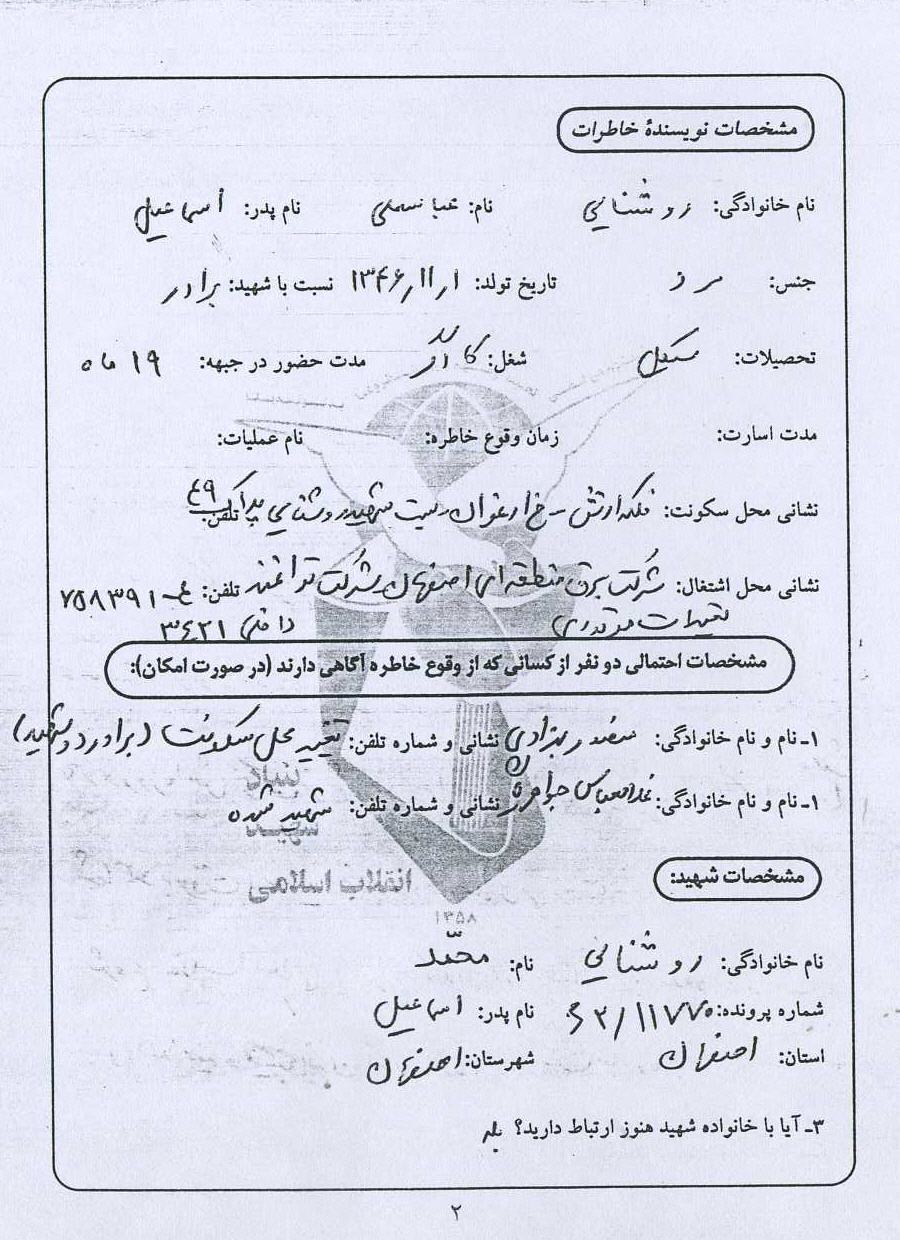 مشخصات نویسندهٔ خاطرات
نام خانوادگی: روشنایی نام: عباسعلی نام پدر: اسماعیل
جنس: مرد تاریخ تولد: ۱۳۴۶/۱۱/۱ نسبت با شهید: برادر
تحصیلات: سیکل شغل: کارگر مدت حضور در جبهه: ۱۹ ماه
مدت اسارت: زمان وقوع خاطره: نام عملیات:
نشانی محل سکونت: فلکه ارتش - خ ارغوان - بیت شهید روشنایی پلاک ۴۹ تلفن:
نشانی محل اشتغال: شرکت برق منطقه ای اصفهان شرکت توانمند تلفن: ۷۵۸۳۹۱-۴
تعمیرات داخلی ۳۴۲۱
مشخصات احتمالی دو نفر از کسانی که از وقوع خاطره آگاهی دارند (در صورت امکان):
۱ـ نام و نام خانوادگی: نشانی و شماره تلفن: تغییر محل سکونت (برادر دو شهید)
۱ـ نام و نام خانوادگی: غلامعباس نشانی و شماره تلفن: شهید شده
مشخصات شهید:
نام خانوادگی: روشنایی نام: محمّد
شماره پرونده: ۶۲/۱۱۷۷۰ نام پدر: اسماعیل
استان: اصفهان شهرستان: اصفهان
۳ـ آیا با خانواده شهید هنوز ارتباط دارید؟ بله
بنیاد
شهید
انقلاب اسلامی
۱۳۵۸
۲